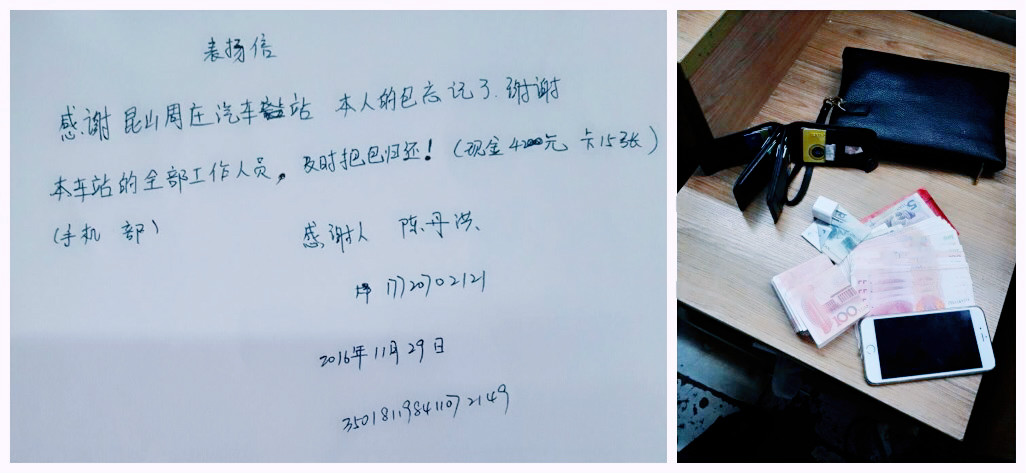 表扬信
感谢昆山周庄汽车站 本人的包忘记了.谢谢
本车站的全部工作人员,及时把包归还!(现金 元 卡15张)
(手机 部)
感谢人 陈丹洪
17720702121
2016年11月29日
350181198411072149
100
5